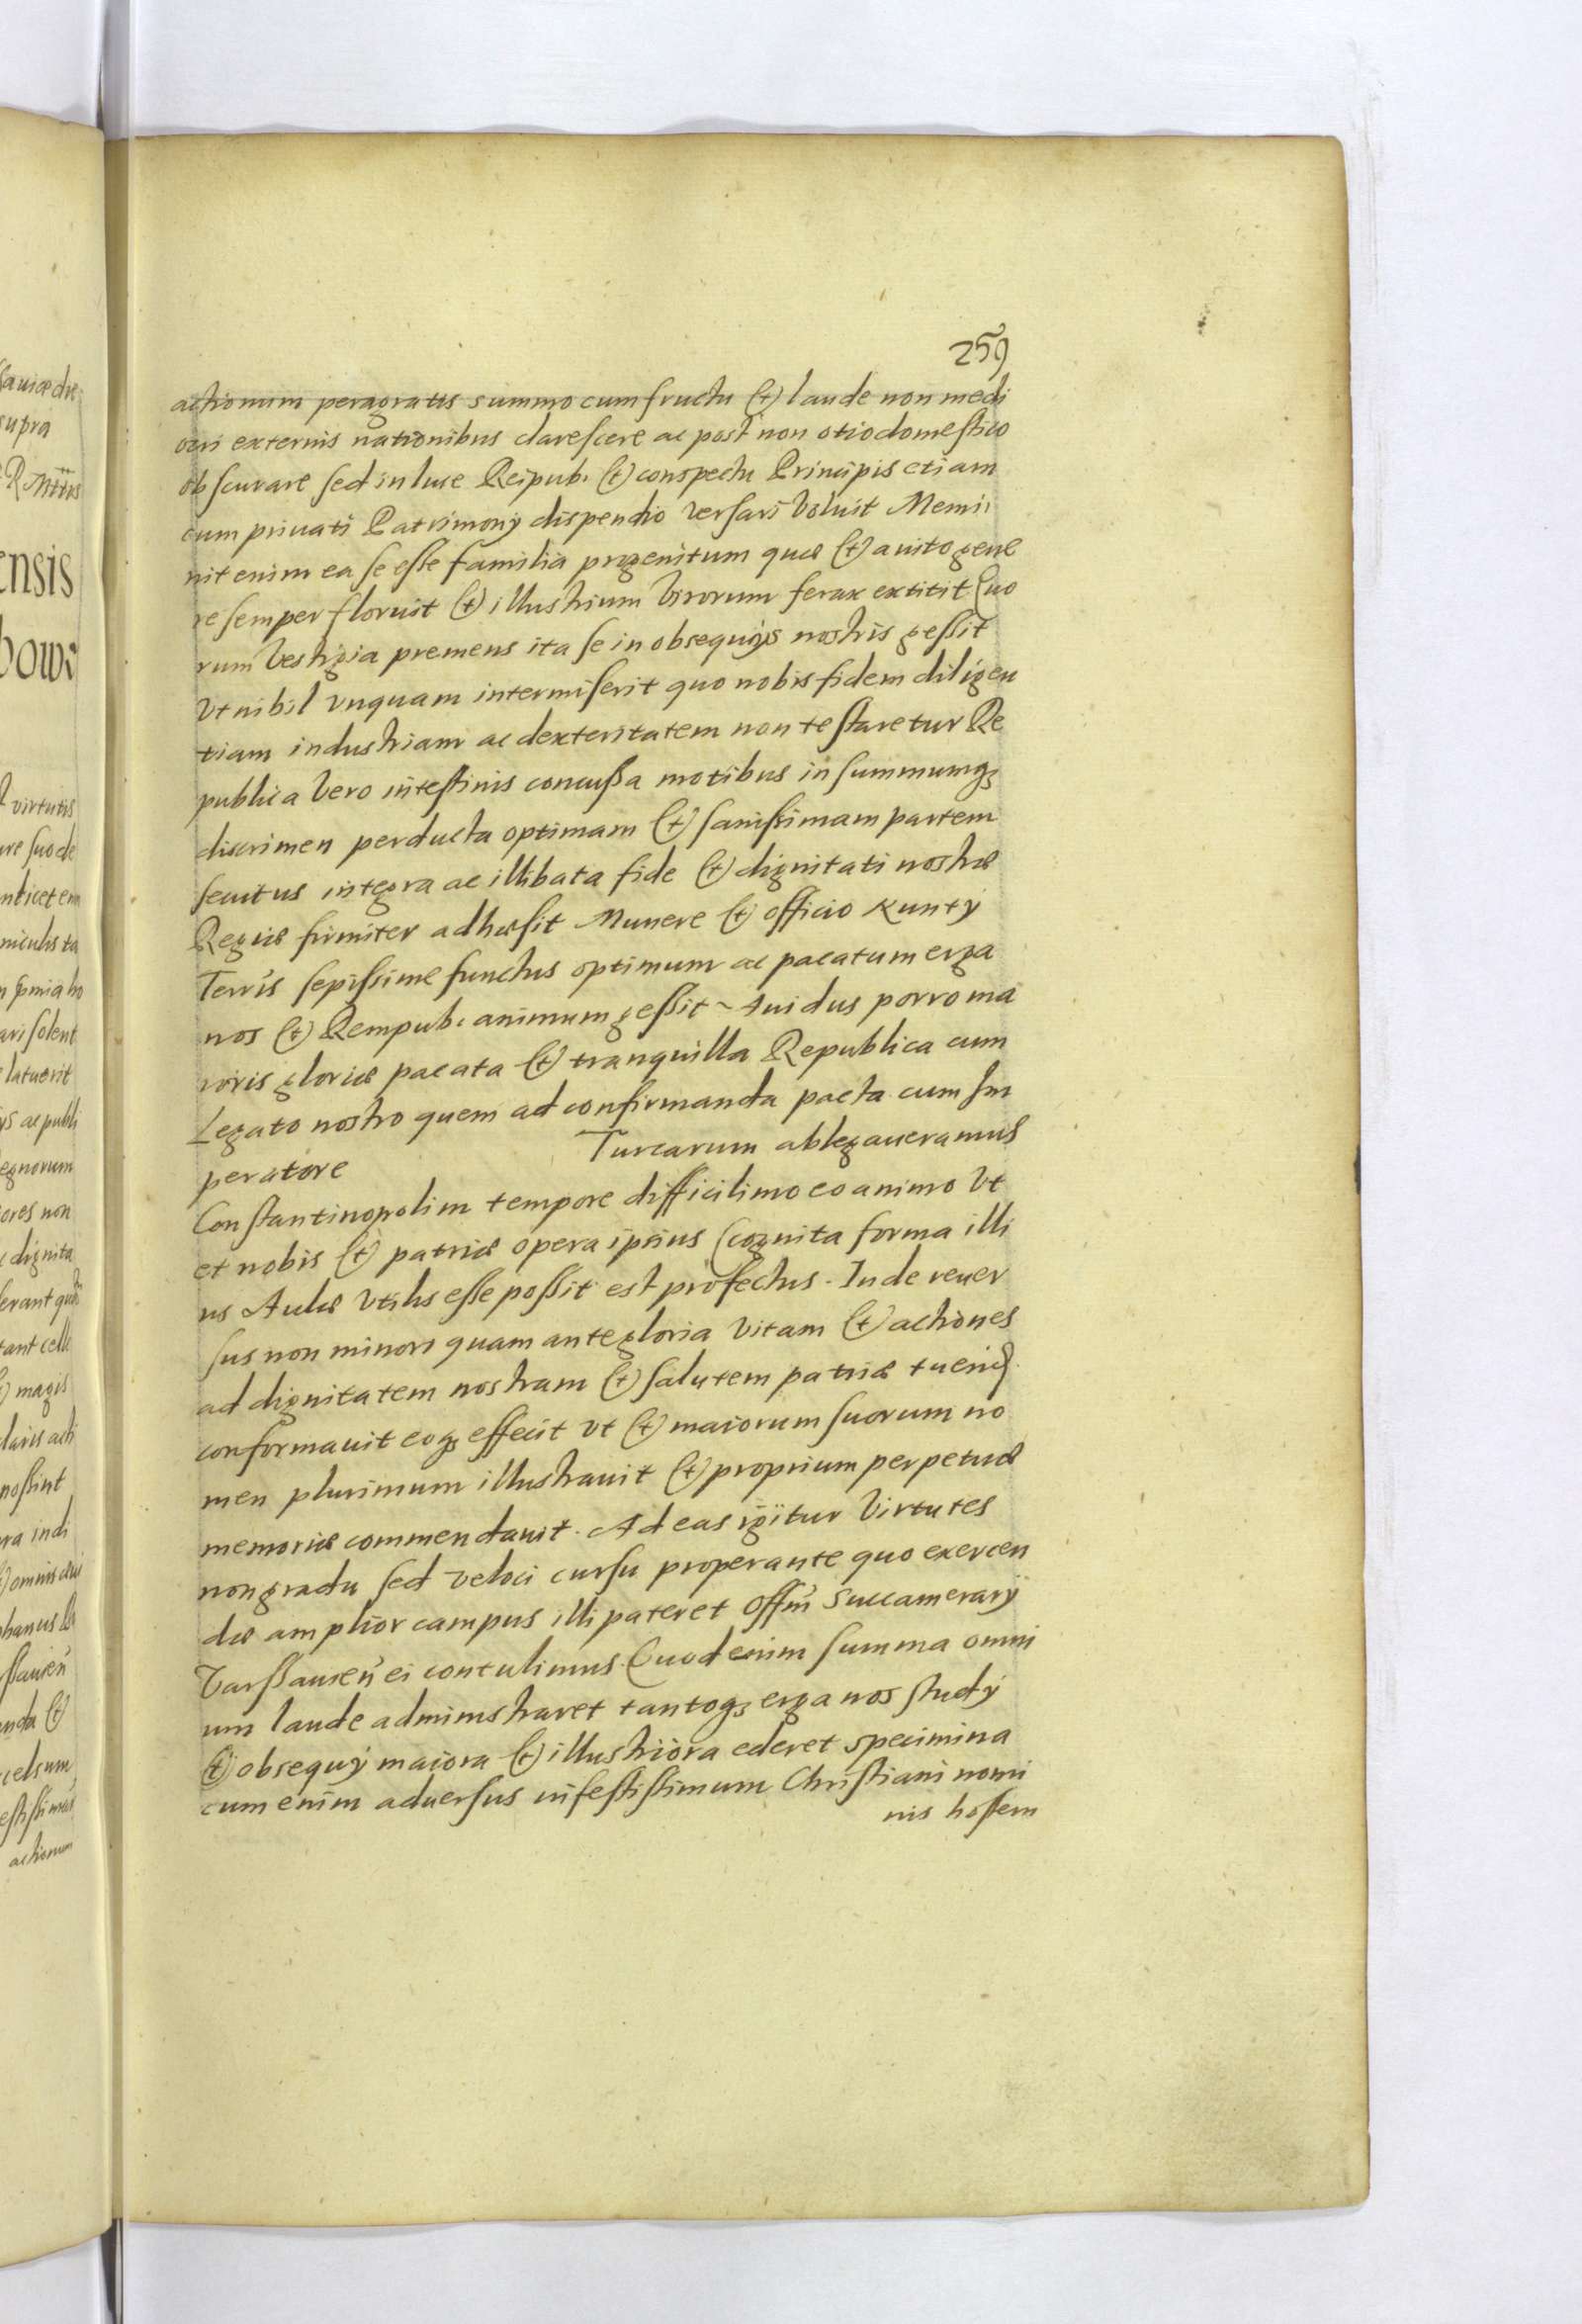 259
actionum peragratis summo cum fructu (et) laude non medi
ocri externis nationibus clarescere ac post non otio domestico
obscurare sed in luce Reipub. (et) conspectu Principis etiam
cum priuati Patrimonÿ dispendio versari voluit Memi
nit enim ea se esse familia progenitum quæ (et) auito gene
re semper floruit (et) illustrium virorum ferax extitit Quo
rum vestigia premens ita se in obsequÿs nostris gessit
vt nihil vnquam intermiserit quo nobis fidem diligen
tiam industriam ac dexteritatem non testaretur Re
publica vero intestinis concussa motibus in summumq3
discrimen perducta optimam (et) sanissimam partem
secutus integra ac illibata fide (et) dignitati nostræ
Regiæ firmiter adhæsit Munere (et) officio Kuntÿ
Terris sepissime functus optimum ac pacatum erga
nos (et) Rempub. animum gessit ~ Auidus porro ma
ioris gloriæ pacata (et) tranquilla Republica cum
Legato nostro quem ad confirmanda pacta cum Im
peratore Turcarum ablegaueramus
Constantinopolim tempore difficilimo eo animo vt
et nobis (et) patriæ opera ipsius (cognita forma illi
us Aulæ vtilis esse possit est profectus. Inde reuer
sus non minori quam ante gloria vitam (et) actiones
ad dignitatem nostram (et) salutem patriæ tuend
conformauit eoq3 effecit vt (et) maiorum suorum no
men plurimum illustrauit (et) proprium perpetuæ
memoriæ commendauit. Ad eas igitur virtutes
non gradu sed veloci cursu properante quo exercen
dæ amplior campus illi pateret Offm Succamerarÿ
Varssauien ei contulimus. Quod enim summa omni
um laude administraret tantoq3 erga nos studÿ
(et) obsequÿ maiora (et) illustriora ederet specimina
cum enim aduersus infestissimum Christiani nomi
nis hostem